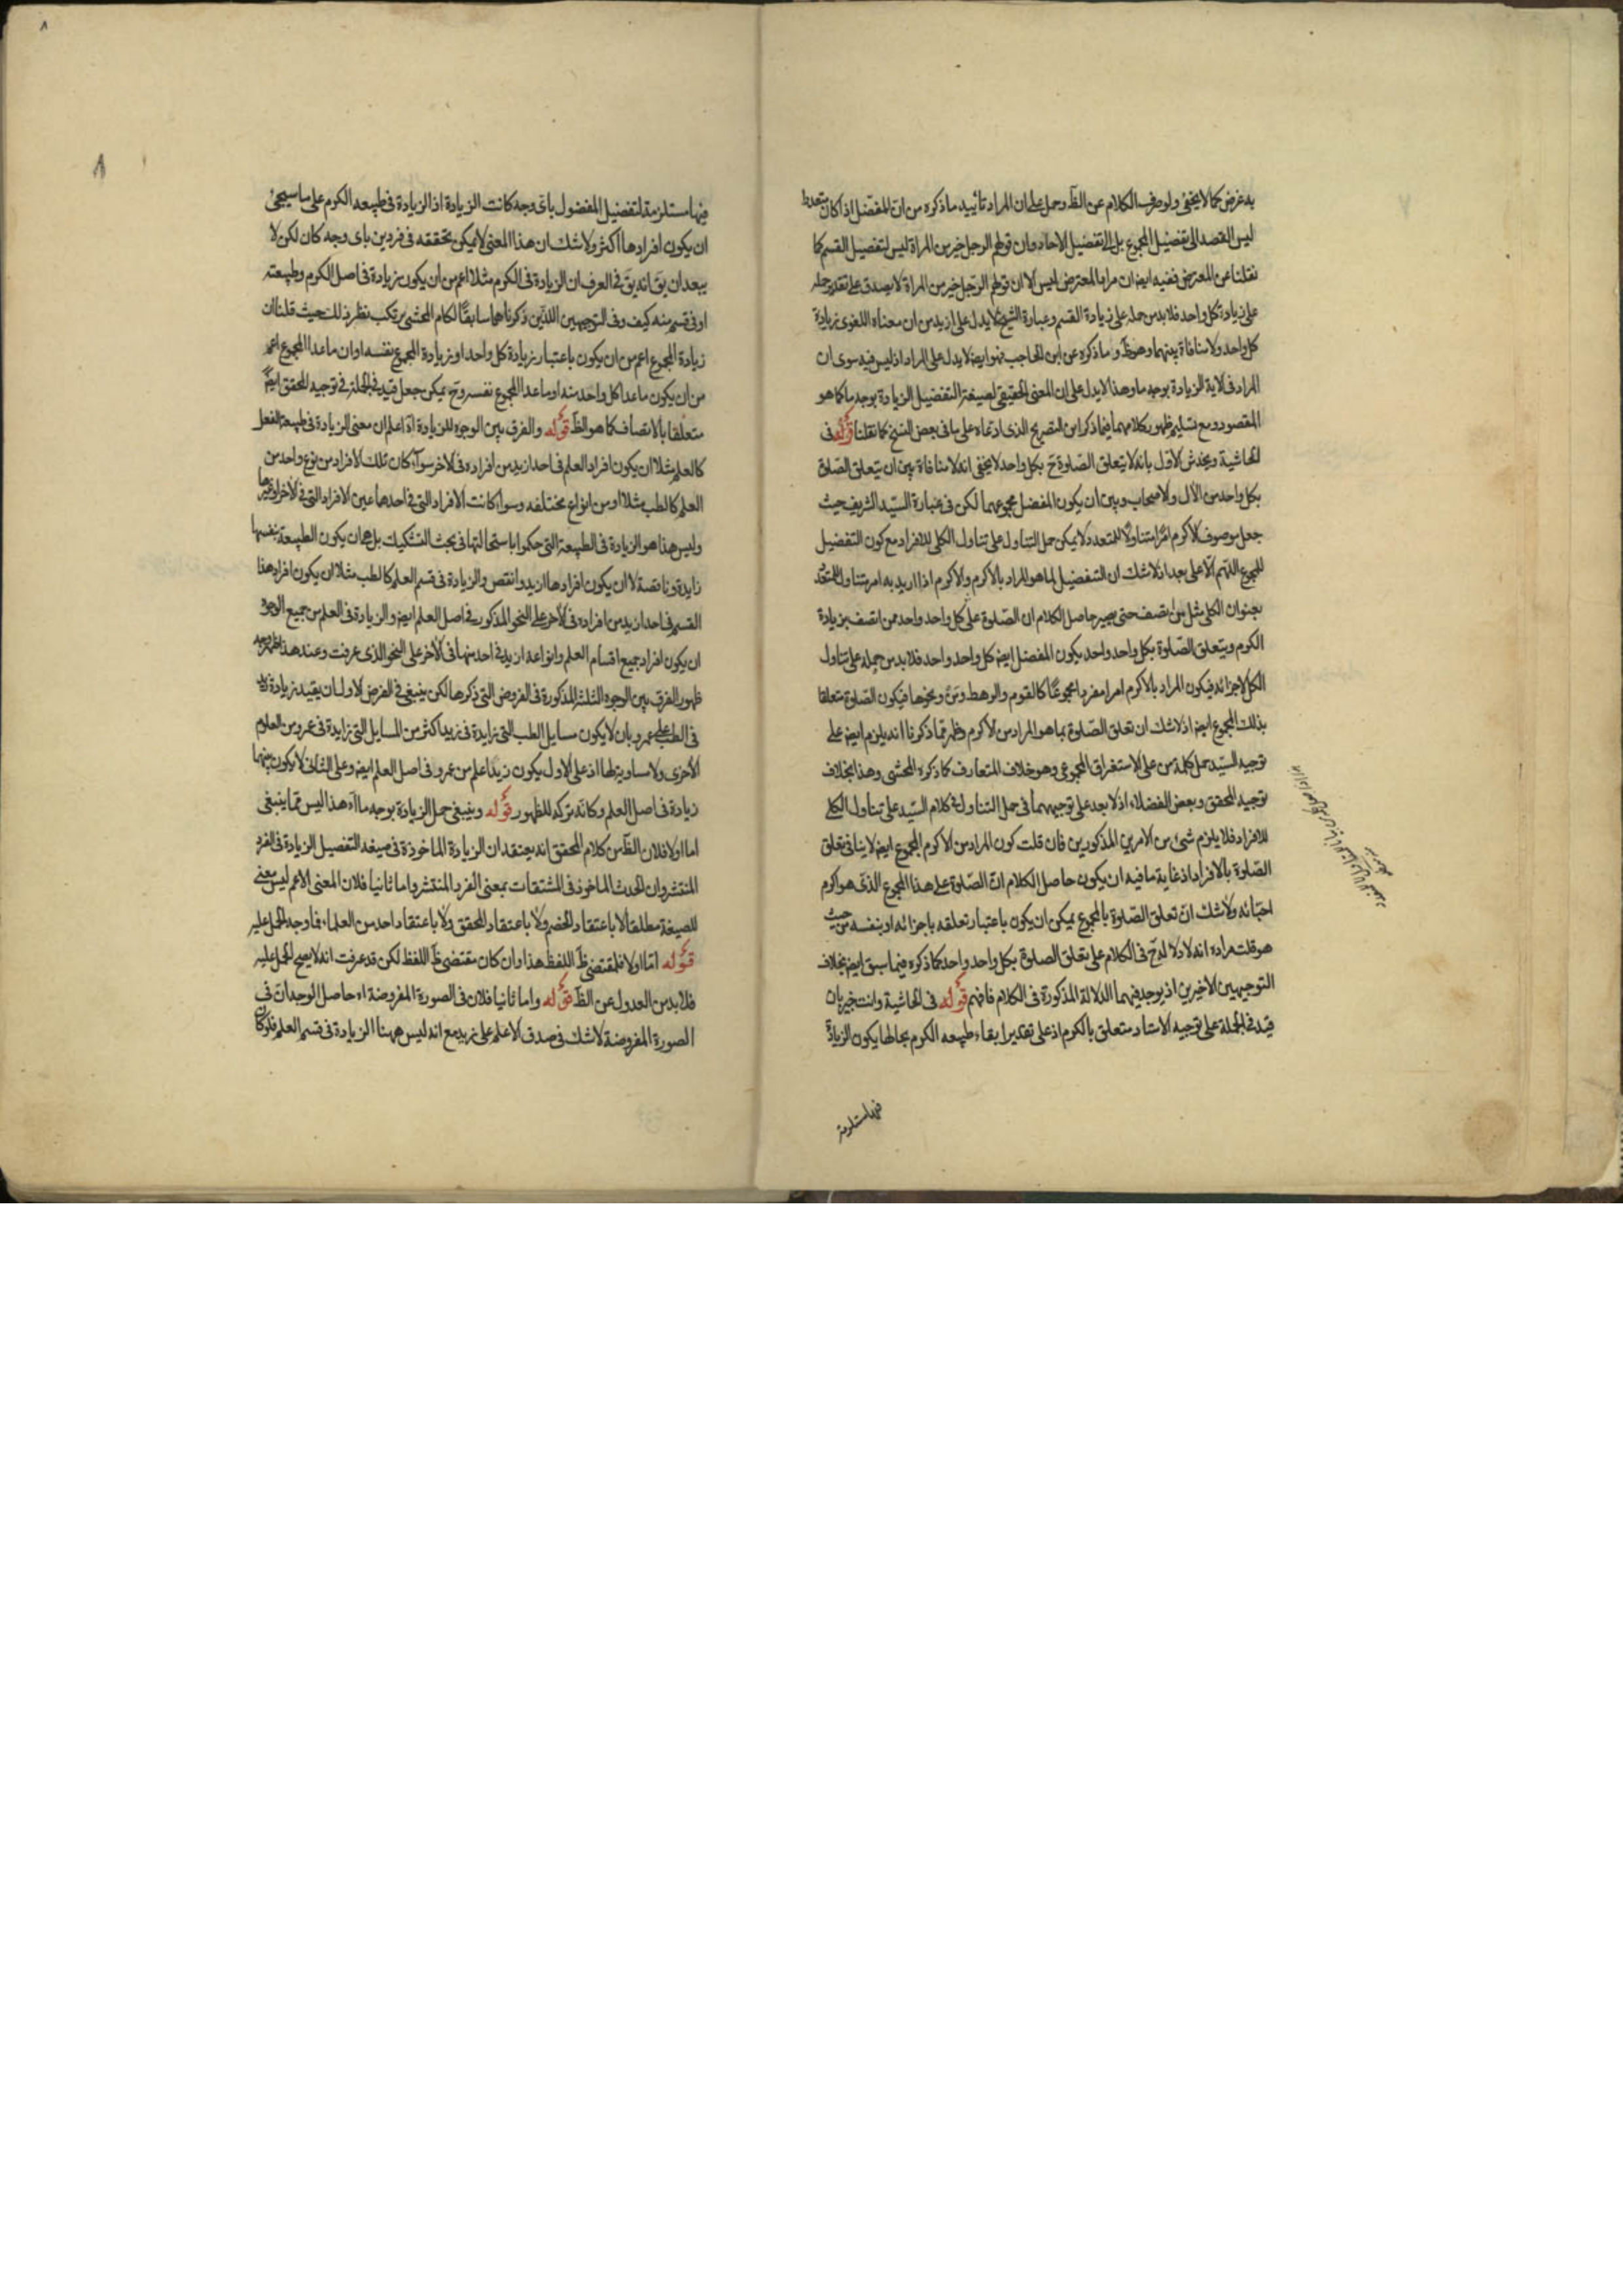 به غرض كما لا يخفى ولو صرف الكلام عن الظ وحمل على ان المراد تأييد ما ذكره من ان المفضل اذا كان متعددا
ليس القصد الى تفضيل المجموع بل الا تفضيل الاحاد وان قولهم الرجل خير من المراة ليس لتفضيل القسم كما
نقلنا عن المعترض ففيه ايض ان مراد المعترض ليس الا ان قولهم الرجل خير من المراة لا يصدق على تقدير حمله
على زيادة كل واحد فلا بد من حمله على زيادة القسم وعبارة الشيخ لا يدل على ازيد من ان معناه اللغوى زيادة
كل واحد ولا منافاة بينهما وهو ظ وما ذكره عن ابن الحاجب فهو ايض لا يدل على المراد اذ ليس فيه سوى ان
المراد فى الاية الزيادة بوجه ما وهذا لا يدل على ان المعنى الحقيقى لصيغة التفضيل الزيادة بوجه ما كما هو
المقصود ومع تسليم ظهور كلامهما فيما ذكر اين التصريح الذى ادعاه على ما فى بعض النسخ كما نقلنا قوله فى
الحاشية ويخدش الاول بانه لا يتعلق الصلوة ح بكل واحد لا يخفى انه لا منافاة بين ان يتعلق الصلوة
بكل واحد من الآل والاصحاب وبين ان يكون المفضل مجموعهما لكن فى عبارة السيد الشريف حيث
جعل موصوف الاكرم امرا متناولا للمتعدد ولا يمكن حمل التناول على تناول الكلى للافراد مع كون التفضيل
للمجموع اللهم الا على بعد اذ لا شك ان التفضيل لما هو المراد بالاكرم والاكرم اذا اريد به امر متناول للمتعدد
بعنوان الكلى مثل من اتصف حتى يصير حاصل الكلام ان الصلوة على كل واحد واحد ممن اتصف بزيادة
الكرم ويتعلق الصلوة بكل واحد واحد يكون المفضل ايض كل واحد واحد فلا بد من حمله على تناول
الكل لاجزائه فيكون المراد بالاكرم امرا مفردا مجموعا كالقوم والرهط ومن ونحوها فيكون الصلوة متعلقا
بذلك المجموع ايض اذ لا شك ان تعلق الصلوة بما هو المراد من الاكرم وظهر مما ذكرنا انه يلزم ايض على
توجيه السيد حمل كلمة من على الاستغراق المجموعى وهو خلاف المتعارف كما ذكره المحشى وهذا بخلاف
توجيه المحقق وبعض الفضلاء اذ لا بعد على توجيههما فى حمل التناول فى كلام السيد على تناول الكلى
للافراد فلا يلزم شئ من الامرين المذكورين فان قلت كون المراد من الاكرم المجموع ايض لا ينافى تعلق
الصلوة بالافراد اذ غاية ما فيه ان يكون حاصل الكلام ان الصلوة على هذا المجموع الذى هو اكرم
احبائه ولا شك ان تعلق الصلوة بالمجموع يمكن ان يكون باعتبار تعلقه باجزائه او بنفسه من حيث
هو قلت مراده انه لا دلالة ح فى الكلام على تعلق الصلوة بكل واحد واحد كما ذكره فيما سبق ايض بخلاف
التوجيهين الاخيرين اذ يوجد فيهما الدلالة المذكورة فى الكلام فافهم قوله فى الحاشية وانت خبير بان
قيد فى الجملة على توجيه الاستاد متعلق بالكرم اذ على تقدير ابقاء طبيعه الكرم بحالها يكون الزيادة
فيها مستلزمة
٨
فيها مستلزمة لتفضيل المفضول باى وجه كانت الزيادة اذ الزيادة فى طبيعه الكرم على ما سيجئ
ان يكون افرادها اكثر ولا شك ان هذا المعنى لا يمكن تحققه فى فردين باى وجه كان لكن لا
يبعد ان يق انه يق فى العرف ان الزيادة فى الكرم مثلا اعم من ان يكون زيادة فى اصل الكرم وطبيعته
او فى قسم منه كيف وفى التوجيهين اللذين ذكرناهما سابقا لكلام المحشى يرتكب نظير ذلك حيث قلنا ان
زيادة المجموع اعم من ان يكون باعتبار زيادة كل واحد او زيادة المجموع نفسه او ان ما عدا المجموع اعم
من ان يكون ما عدا كل واحد منه او ما عدا المجموع نفسه وح يمكن جعل قيد فى الجملة فى توجيه المحقق ايض
متعلقا بالاتصاف كما هو الظ قوله والفرق بين الوجوه للزيادة اه اعلم ان معنى الزيادة فى طبيعة الفعل
كالعلم مثلا ان يكون افراد العلم فى احد ازيد من افراده فى الاخر سواء كان تلك الافراد من نوع واحد من
العلم كالطب مثلا او من انواع مختلفه وسواء كانت الافراد التى فى احدهما عين الافراد التى فى الاخر او غيرها
وليس هذا هو الزيادة فى الطبيعة التى حكموا باستحالتها فى بحث التشكيك بل هى ان يكون الطبيعة بنفسها
زايدة وناقصة لا ان يكون افرادها ازيد وانقص والزيادة فى قسم العلم كالطب مثلا ان يكون افراد هذا
القسم فى احد ازيد من افراده فى الاخر على النحو المذكور فى اصل العلم ايض والزيادة فى العلم من جميع الوجوه
ان يكون افراد جميع اقسام العلم وانواعه ازيد فى احد منها فى الاخر على النحو الذى عرفت وعند هذا ظهر وجه
ظهور الفرق بين الوجوه الثلثة المذكورة فى الفروض التى ذكرها لكن ينبغى فى الفرض الاول ان يقيد زيادة زيد
فى الطب على عمرو بان لا يكون مسايل الطب التى زايدة فى زيد اكثر من المسايل التى زايدة فى عمرو من العلوم
الاخرى ولا مساوية لها اذ على الاول يكون زيد اعلم من عمرو فى اصل العلم ايض وعلى الثانى لا يكون بينهما
زيادة فى اصل العلم وكانه تركه للظهور قوله وينبغى حمل الزيادة بوجه ما اه هذا ليس مما ينبغى
اما اولا فلان الظ من كلام المحقق انه يعتقد ان الزيادة الماخوذة فى صيغه التفضيل الزيادة فى الفرد
المنتشر وان الحدث الماخوذ فى المشتقات بمعنى الفرد المنتشر واما ثانيا فلان المعنى الاعم ليس معنى
للصيغة مطلقا لا باعتقاد الخصم ولا باعتقاد المحقق ولا باعتقاد احد من العلماء فما وجه الحمل عليه
قوله اما اولا فلمقتضى ظ اللفظ هذا وان كان مقتضى ظ اللفظ لكن قد عرفت انه لا يصح الحمل عليه
فلا بد من العدول عن الظ قوله واما ثانيا فلان فى الصورة المفروضة اه حاصل الوجدان فى
الصورة المفروضة لا شك فى صدق الاعلم على زيد مع انه ليس ههنا الزيادة فى قسم العلم فلو كان